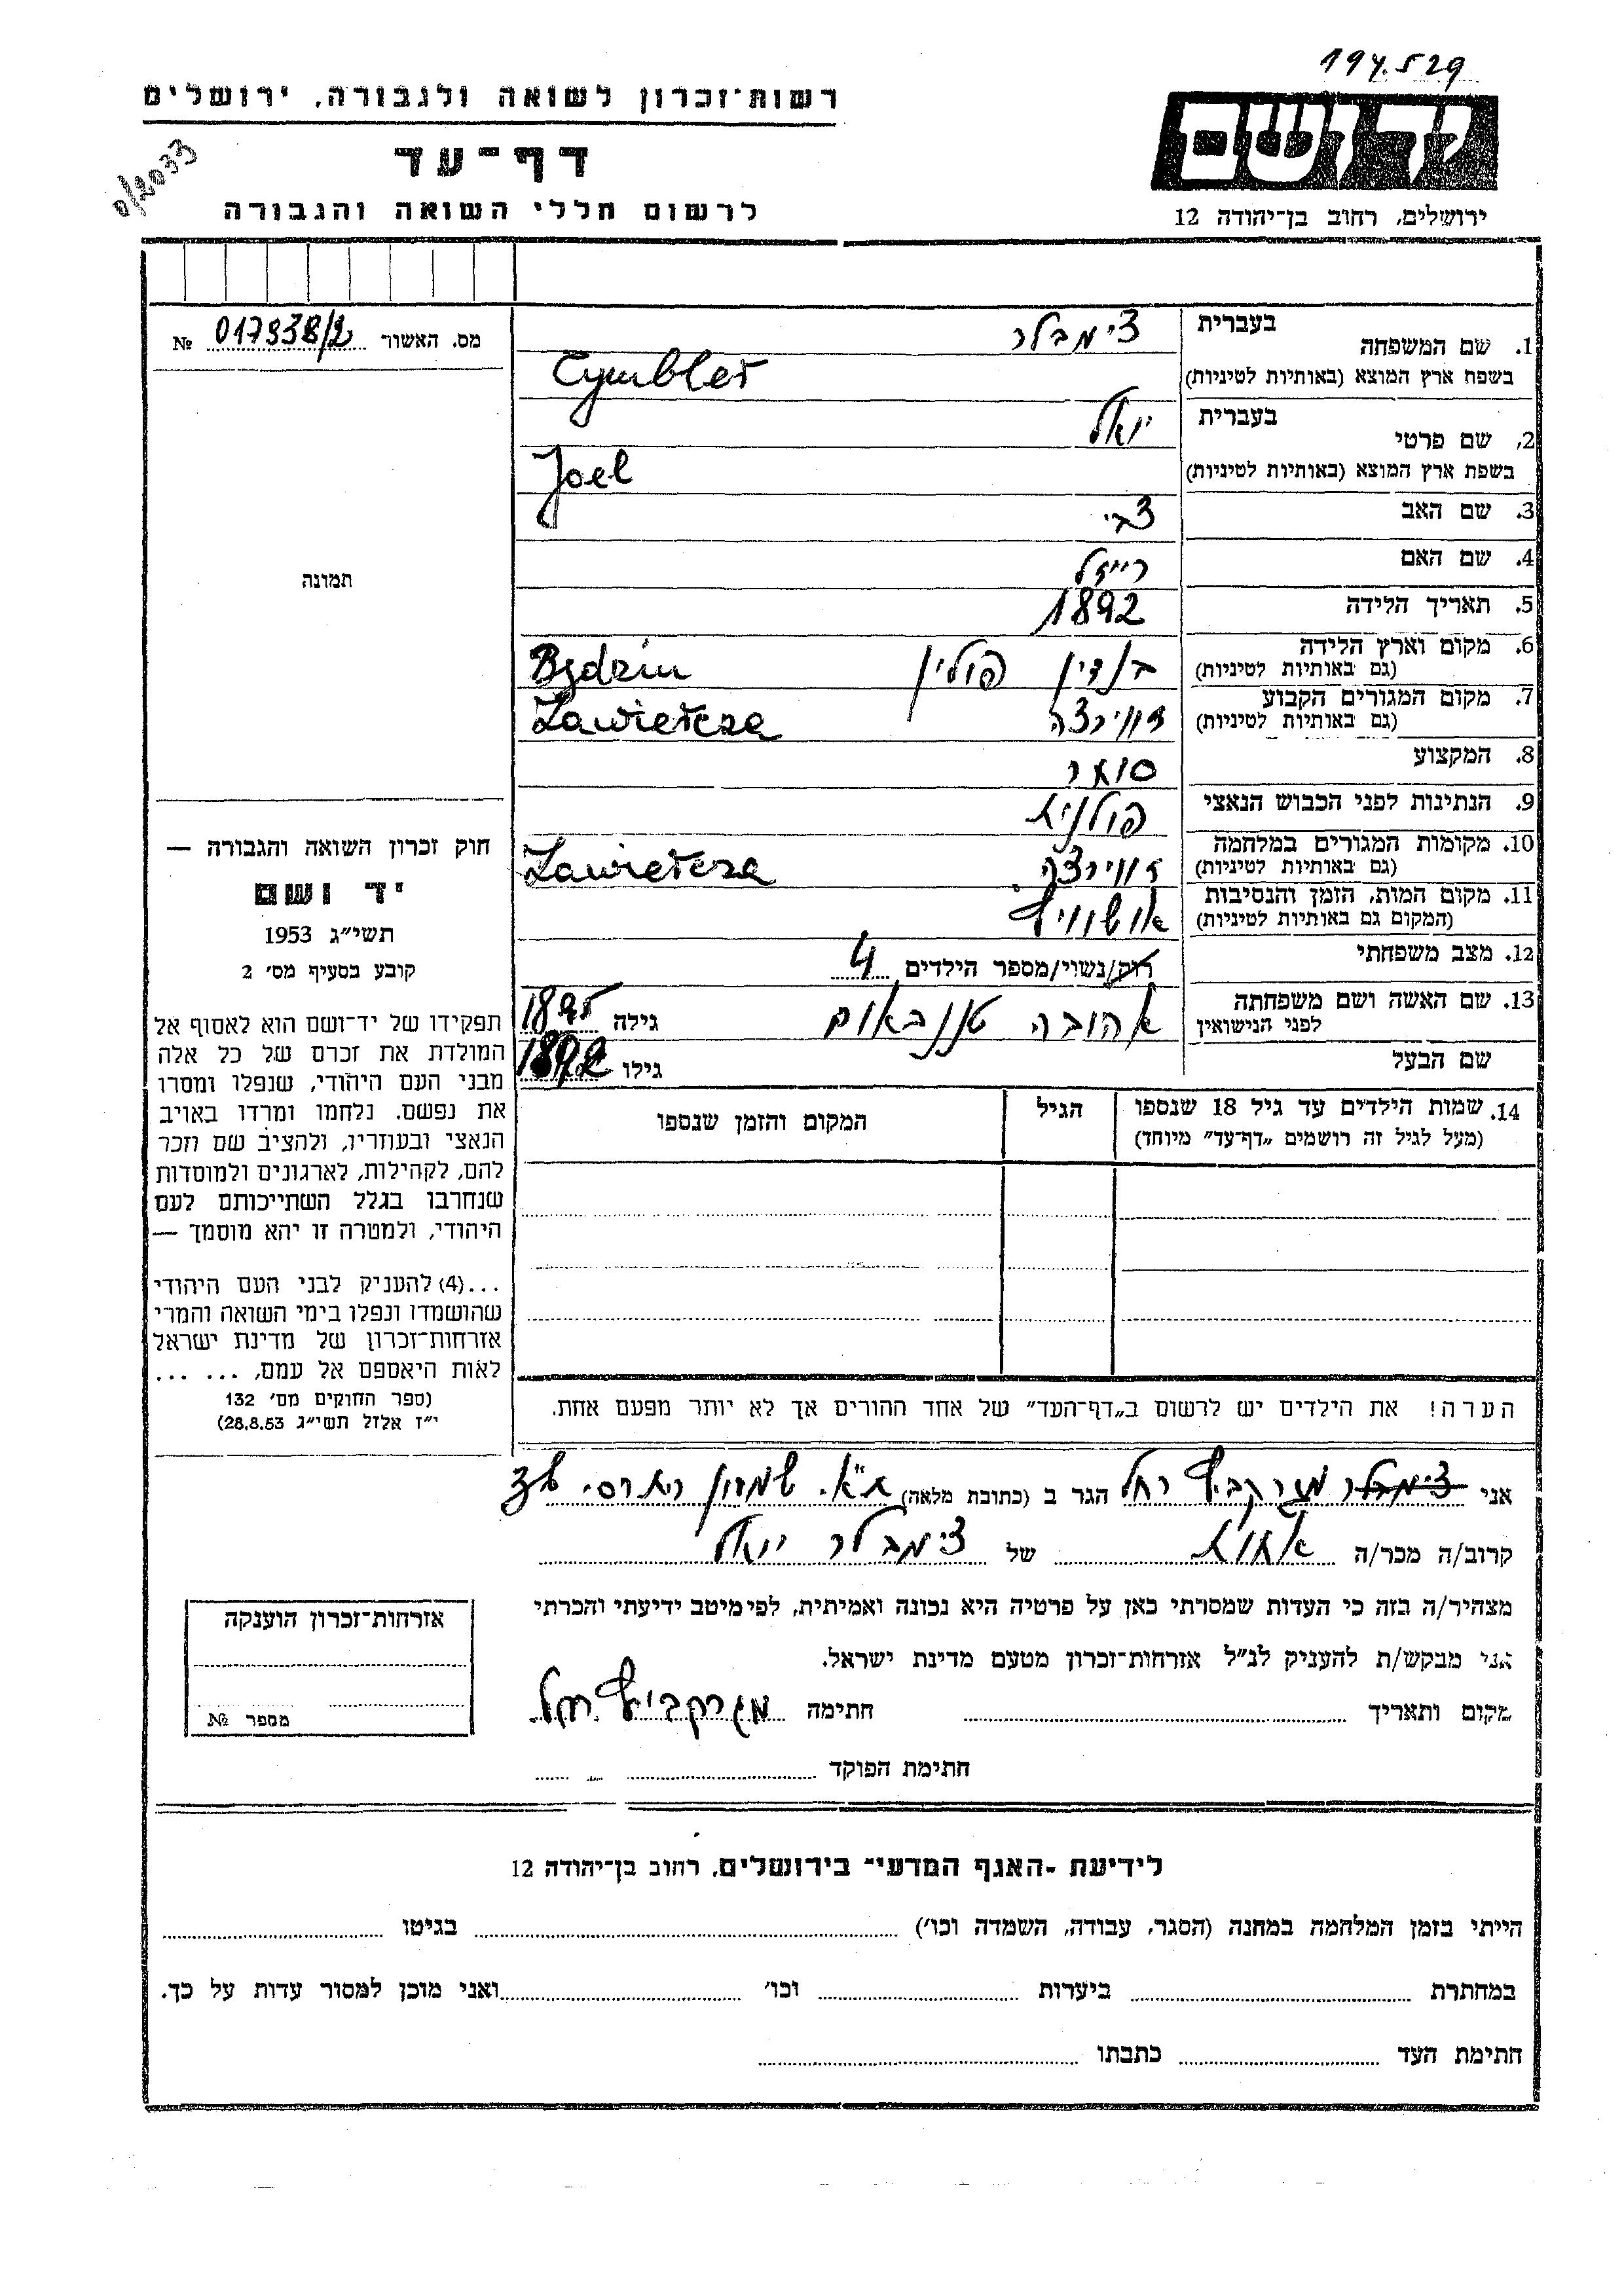 194.529
רשות־זכרון לשואה ולגבורה, ירושלים
דף־עד
לרשום חללי השואה והגבורה
0/2033
ידושם
ירושלים, רחוב בן־יהודה 12
מס. האשור 017938/2 №
תמונה
חוק זכרון השואה והגבורה —
יד ושם
תשי״ג 1953
קובע בסעיף מס׳ 2
תפקידו של יד־ושם הוא לאסוף אל
המולדת את זכרם של כל אלה
מבני העם היהודי, שנפלו ומסרו
את נפשם. נלחמו ומרדו באויב
הנאצי ובעוזריו, ולהציב שם וזכר
להם, לקהילות, לארגונים ולמוסדות
שנחרבו בגלל השתייכותם לעם
היהודי, ולמטרה זו יהא מוסמך —
...(4) להעניק לבני העם היהודי
שהושמדו ונפלו בימי השואה והמרי
אזרחות־זכרון של מדינת ישראל
לאות היאספם אל עמם, ... ...
(ספר החוקים מס׳ 132
י״ז אלול תשי״ג 28.8.53)
1. שם המשפחה בעברית צימבלר
בשפת ארץ המוצא (באותיות לטיניות) Cymbler
2. שם פרטי בעברית יואל
בשפת ארץ המוצא (באותיות לטיניות) Joel
3. שם האב צבי
4. שם האם רייזל
5. תאריך הלידה 1892
6. מקום וארץ הלידה (גם באותיות לטיניות) בנדין פולין Będzin
7. מקום המגורים הקבוע (גם באותיות לטיניות) זווירצה Zawiercza
8. המקצוע סוחר
9. הנתינות לפני הכבוש הנאצי פולנית
10. מקומות המגורים במלחמה (גם באותיות לטיניות) זווירצה Zawiercza
11. מקום המות, הזמן והנסיבות (המקום גם באותיות לטיניות) אושוויץ
12. מצב משפחתי רוק/נשוי/מספר הילדים 4
13. שם האשה ושם משפחתה לפני הנישואין אהובה טננבאום גילה 1895
שם הבעל גילו 1892
14. שמות הילדים עד גיל 18 שנספו הגיל המקום והזמן שנספו
(מעל לגיל זה רושמים „דף־עד״ מיוחד)
הערה! את הילדים יש לרשום ב„דף־העד״ של אחד ההורים אך לא יותר מפעם אחת.
אני צימבלר רחל הגר ב (כתובת מלאה) ת״א.
קרוב/ה מכר/ה אחות של צימבלר יואל
מצהיר/ה בזה כי העדות שמסרתי כאן על פרטיה היא נכונה ואמיתית, לפי מיטב ידיעתי והכרתי
אני מבקש/ת להעניק לנ״ל אזרחות־זכרון מטעם מדינת ישראל.
מקום ותאריך חתימה רחל
חתימת הפוקד
אזרחות־זכרון הוענקה
מספר №
לידיעת -האגף המדעי־ בירושלים, רחוב בן־יהודה 12
הייתי בזמן המלחמה במחנה (הסגר, עבודה, השמדה וכו׳) בגיטו
במחתרת ביערות וכו׳ ואני מוכן למסור עדות על כך.
חתימת העד כתבתו